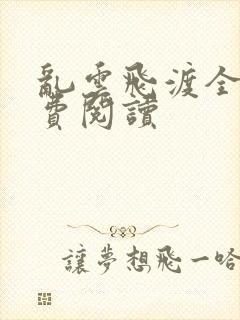 亂雲飛渡全
費閱讀
讓夢想飛一哈